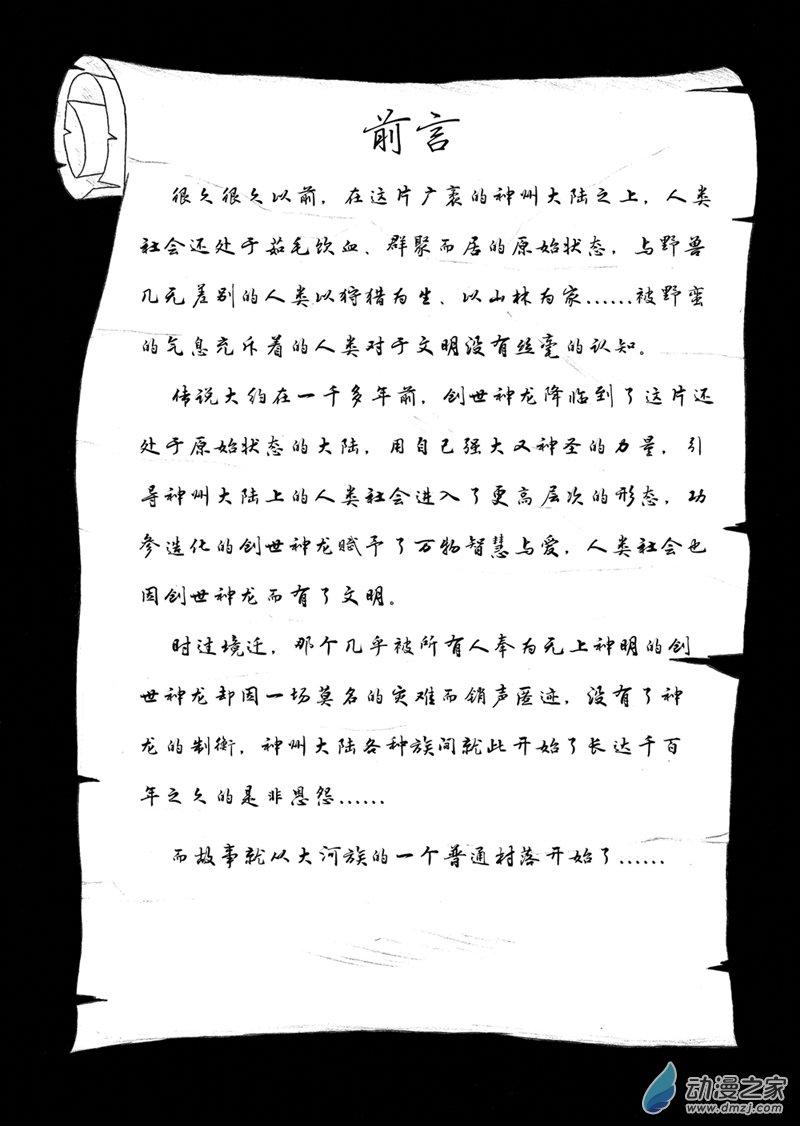 前言
很久很久以前，在这片广袤的神州大陆之上，人类
社会还处于茹毛饮血、群聚而居的原始状态，与野兽
几无差别的人类以狩猎为生、以山林为家……被野蛮
的气息充斥着的人类对于文明没有丝毫的认知。
传说大约在一千多年前，创世神龙降临到了这片还
处于原始状态的大陆，用自己强大又神圣的力量，引
导神州大陆上的人类社会进入了更高层次的形态，功
参造化的创世神龙赋予了万物智慧与爱，人类社会也
因创世神龙而有了文明。
时过境迁，那个几乎被所有人奉为无上神明的创
世神龙却因一场莫名的灾难而销声匿迹，没有了神
龙的制衡，神州大陆各种族间就此开始了长达千百
年之久的是非恩怨……
而故事就从大河族的一个普通村落开始了……
动漫之家
www.dmzj.com